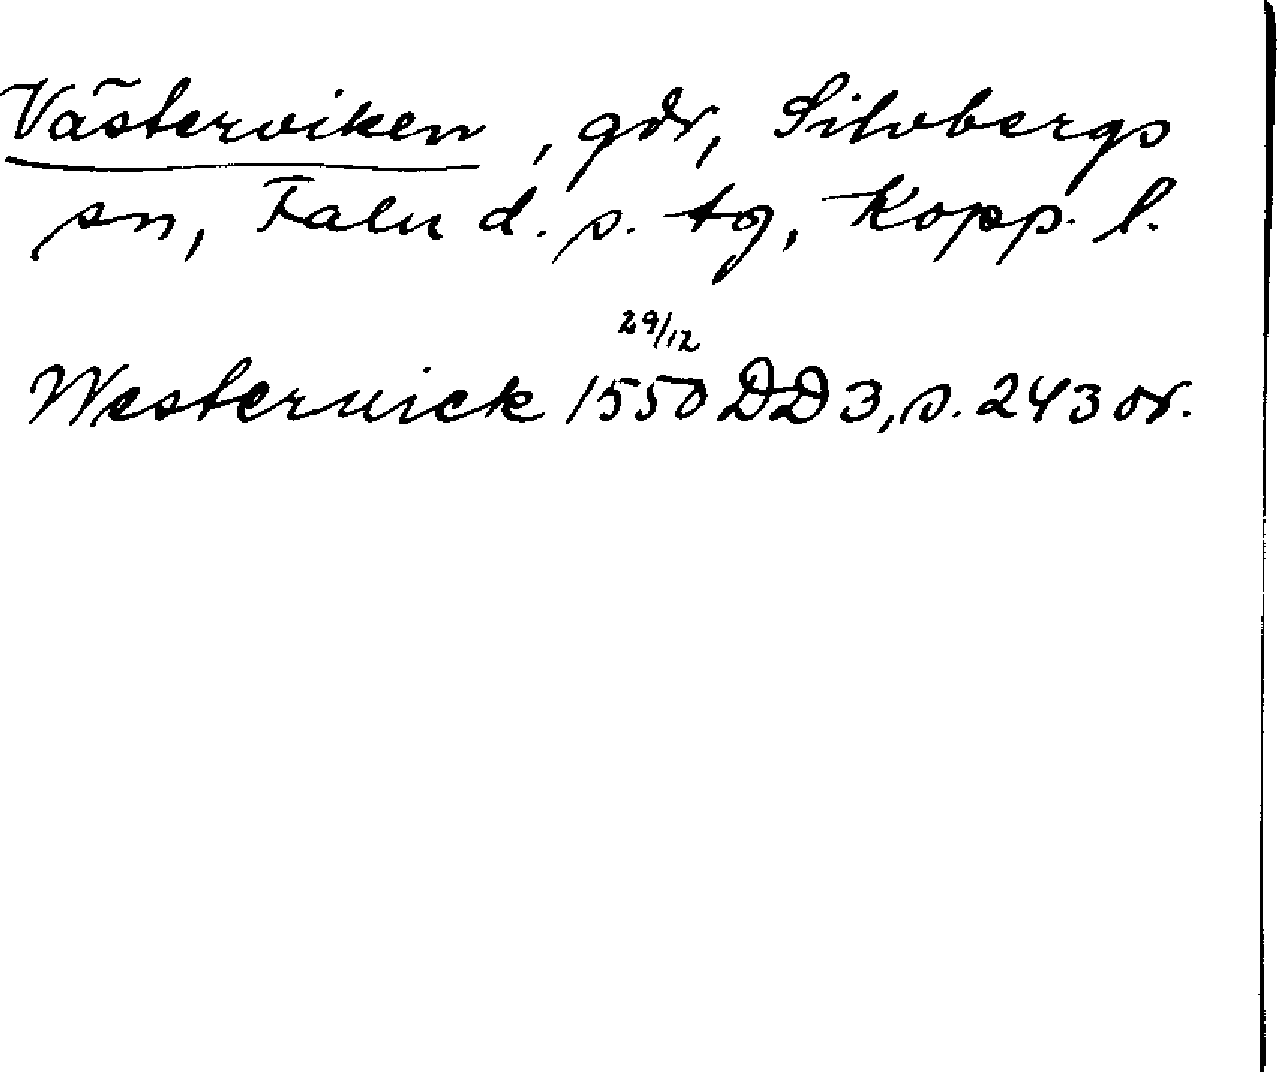 Västerviken, gdr, Silvbergs
sn, Falu d. s. tg, Kopp. l.
29/12
Westerwick 1550 DD 3, s. 243 or.